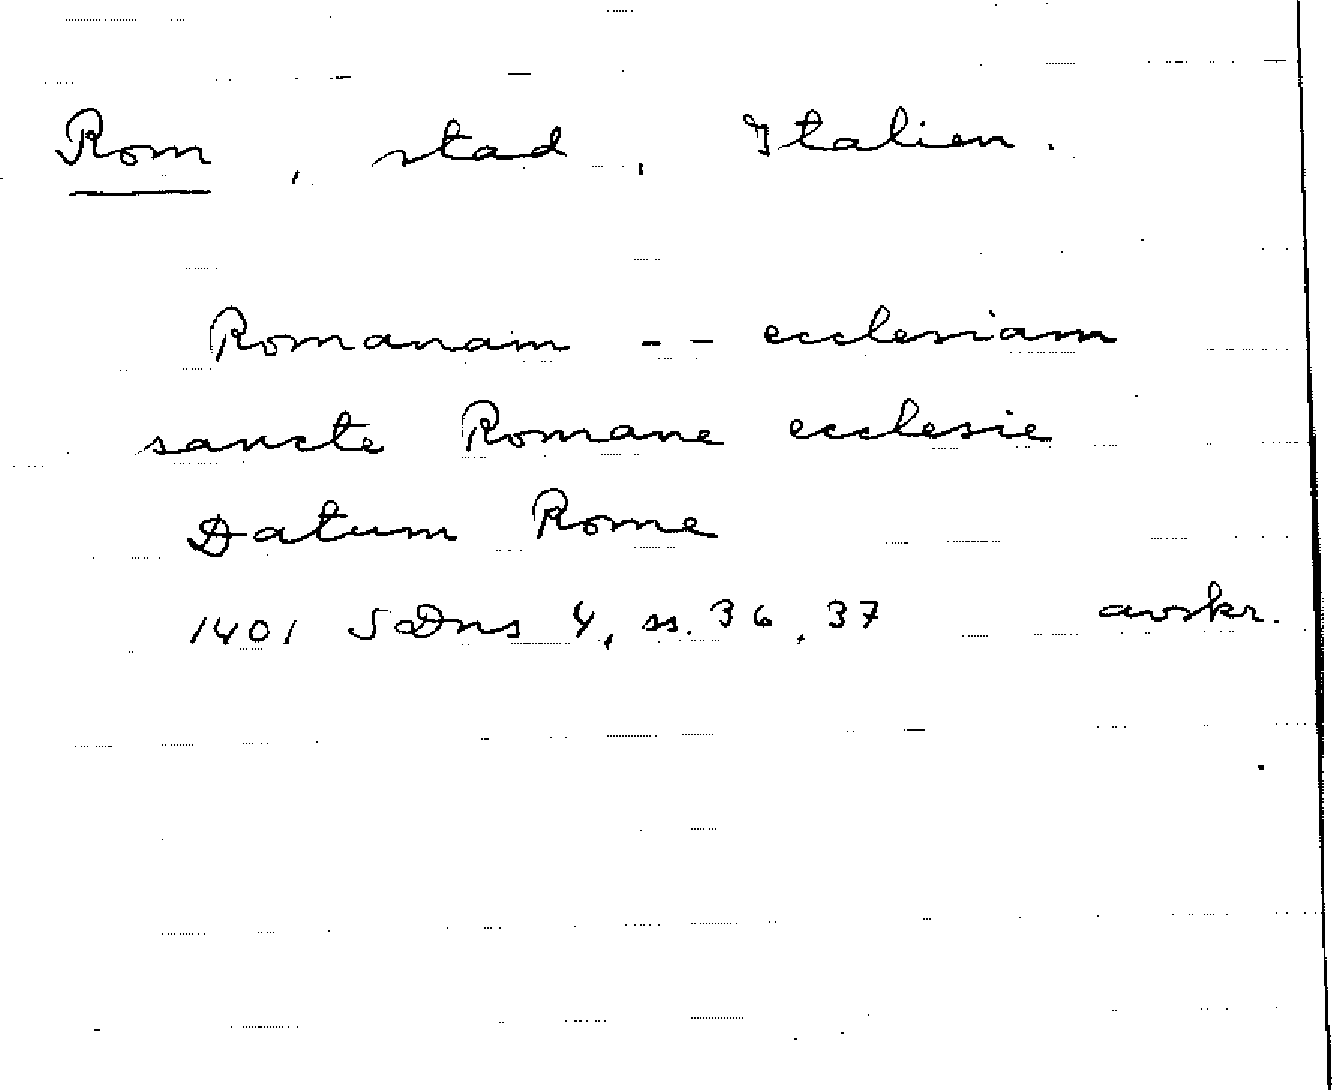 Rom, stad, Italien.
Romanam -- ecclesiam
sancte Romane ecclesie
Datum Rome
1401 SDns 4, ss. 36, 37 avskr.